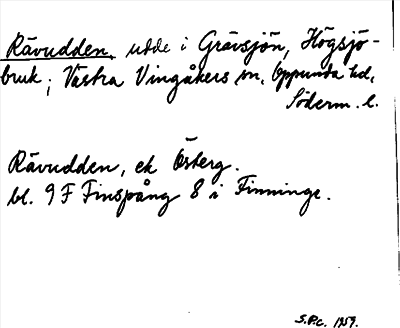 Rävudden, udde i Grävsjön, Högsjö-
bruk; Västra Vingåkers sn, Oppunda hd,
Söderm. l.
Rävudden, ek Österg.
bl. 9 F Finspång 8 i Finninge.
S.P.c. 1959.